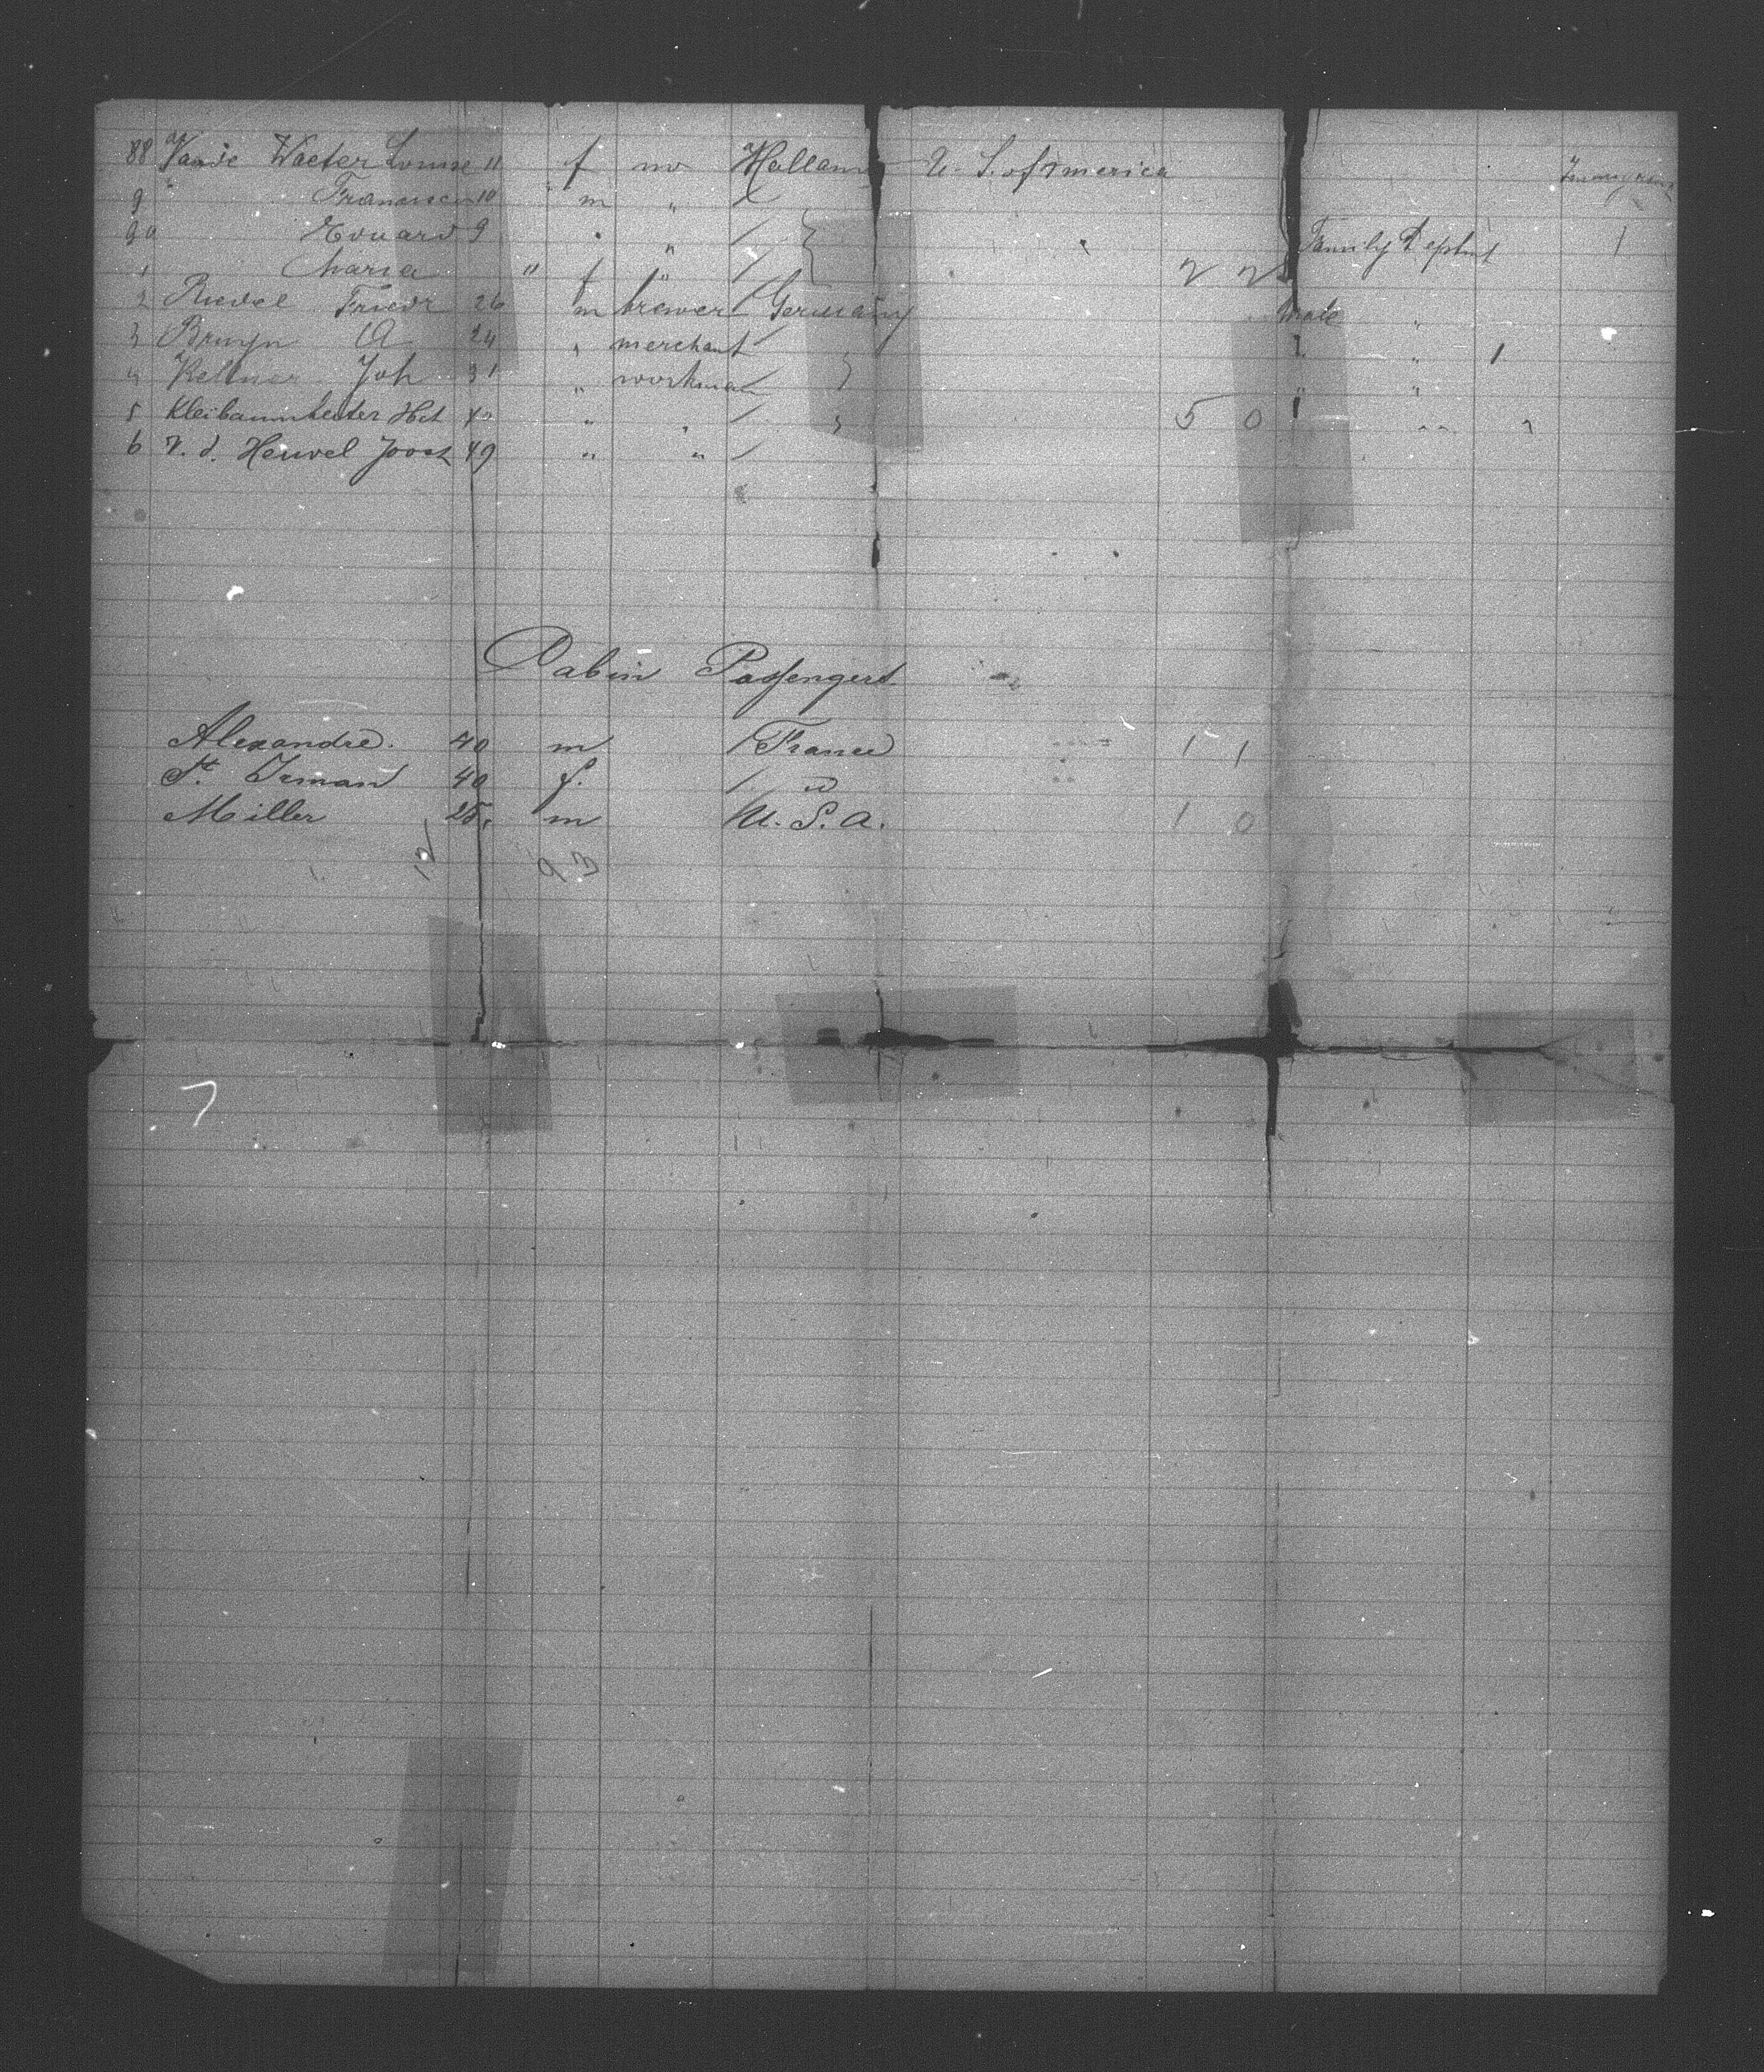 88 Vande Waeter Louise 11 f no Holland U. S. of America
9 " Franciscus 10 " m "
90 Eduard 9 " "
1 Maria " f " 2 2 Family Dept 1
2 Riedel Friedr 26 m brewer / Germany Male "
3 Bruyn A 24 " merchant / " 1
4 Kellner Joh 31 " workman / "
5 Kleibaumheuter Hct " " / 5 0
6 v. d. Heuvel Joost 49 " " /
Cabin Passengers
Alexandre. 40 m / France 1 1
St. Irman 40 f. /
Miller 25 m / U. S. A. 1 0